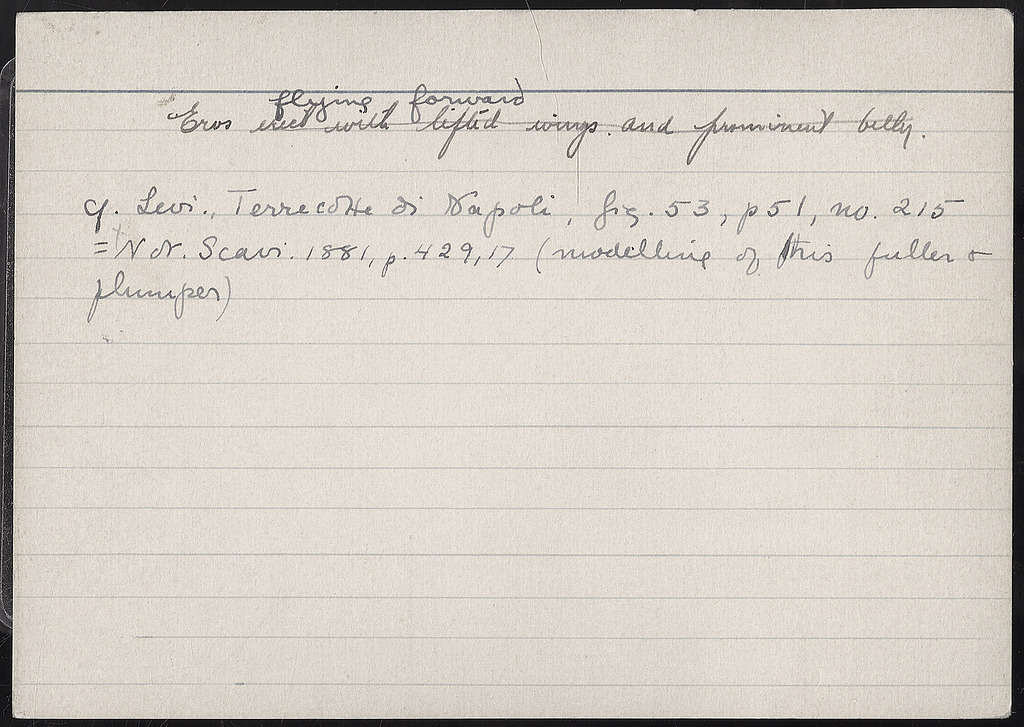 flying forward
Eros erect with lifted wings. and prominent belly.
cf. Levi., Terrecotte di Napoli, fig. 53, p 51, no. 215
= Not. Scavi. 1881, p. 429, 17 (modelling of this fuller &
plumper)